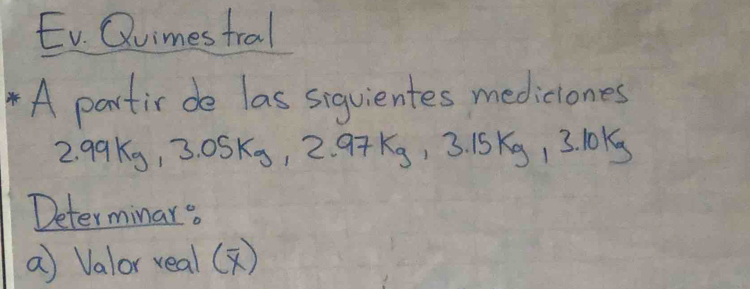 Ev. Quimestral
* A partir de las siguientes mediciones
2.99Kg, 3.05Kg, 2.97Kg, 3.15Kg, 3.10Kg
Determinar:
a) Valor real (x̄)